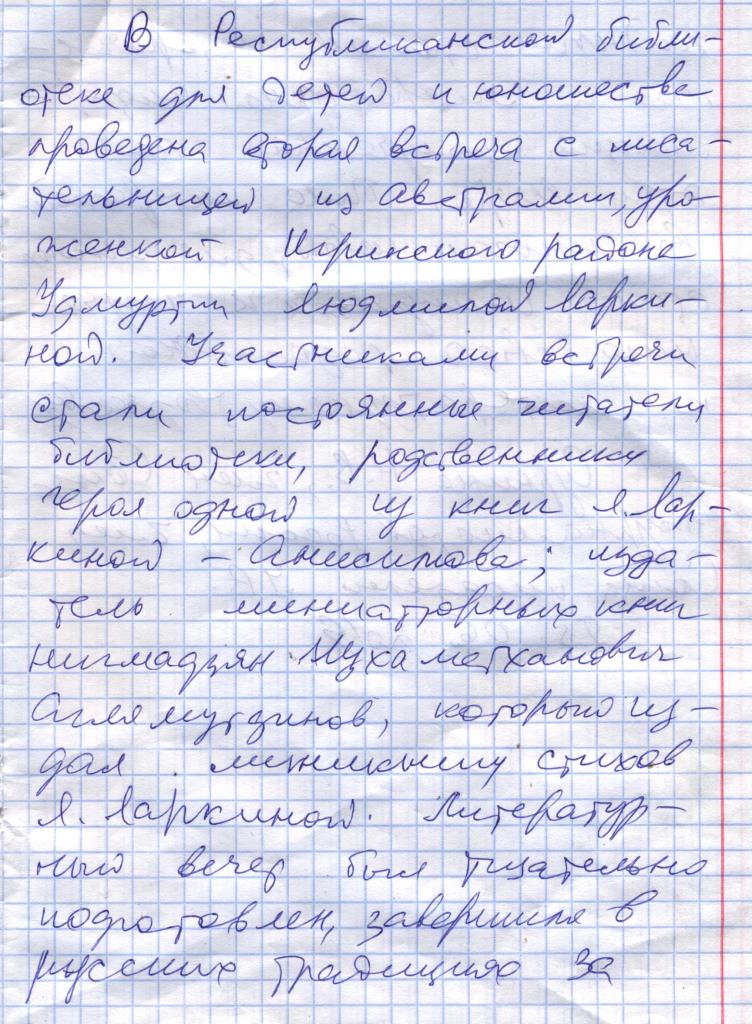 В Республиканской библи-
отеке для детей и юношества
проведена вторая встреча с писа-
тельницей из Австралии, уро-
женкой Игринского района
Удмуртии Людмилой Ларки-
ной. Участниками встречи
стали постоянные читатели
библиотеки, родственники
героя одной из книг Л. Лар-
киной – Анисимова; изда-
тель миниатюрных книг
Нигмадзян Мухаметханович
Аглямутзинов, который из-
дал миникнигу стихов
Л. Ларкиной. Литератур-
ный вечер был тщательно
подготовлен, завершился в
русских традициях за